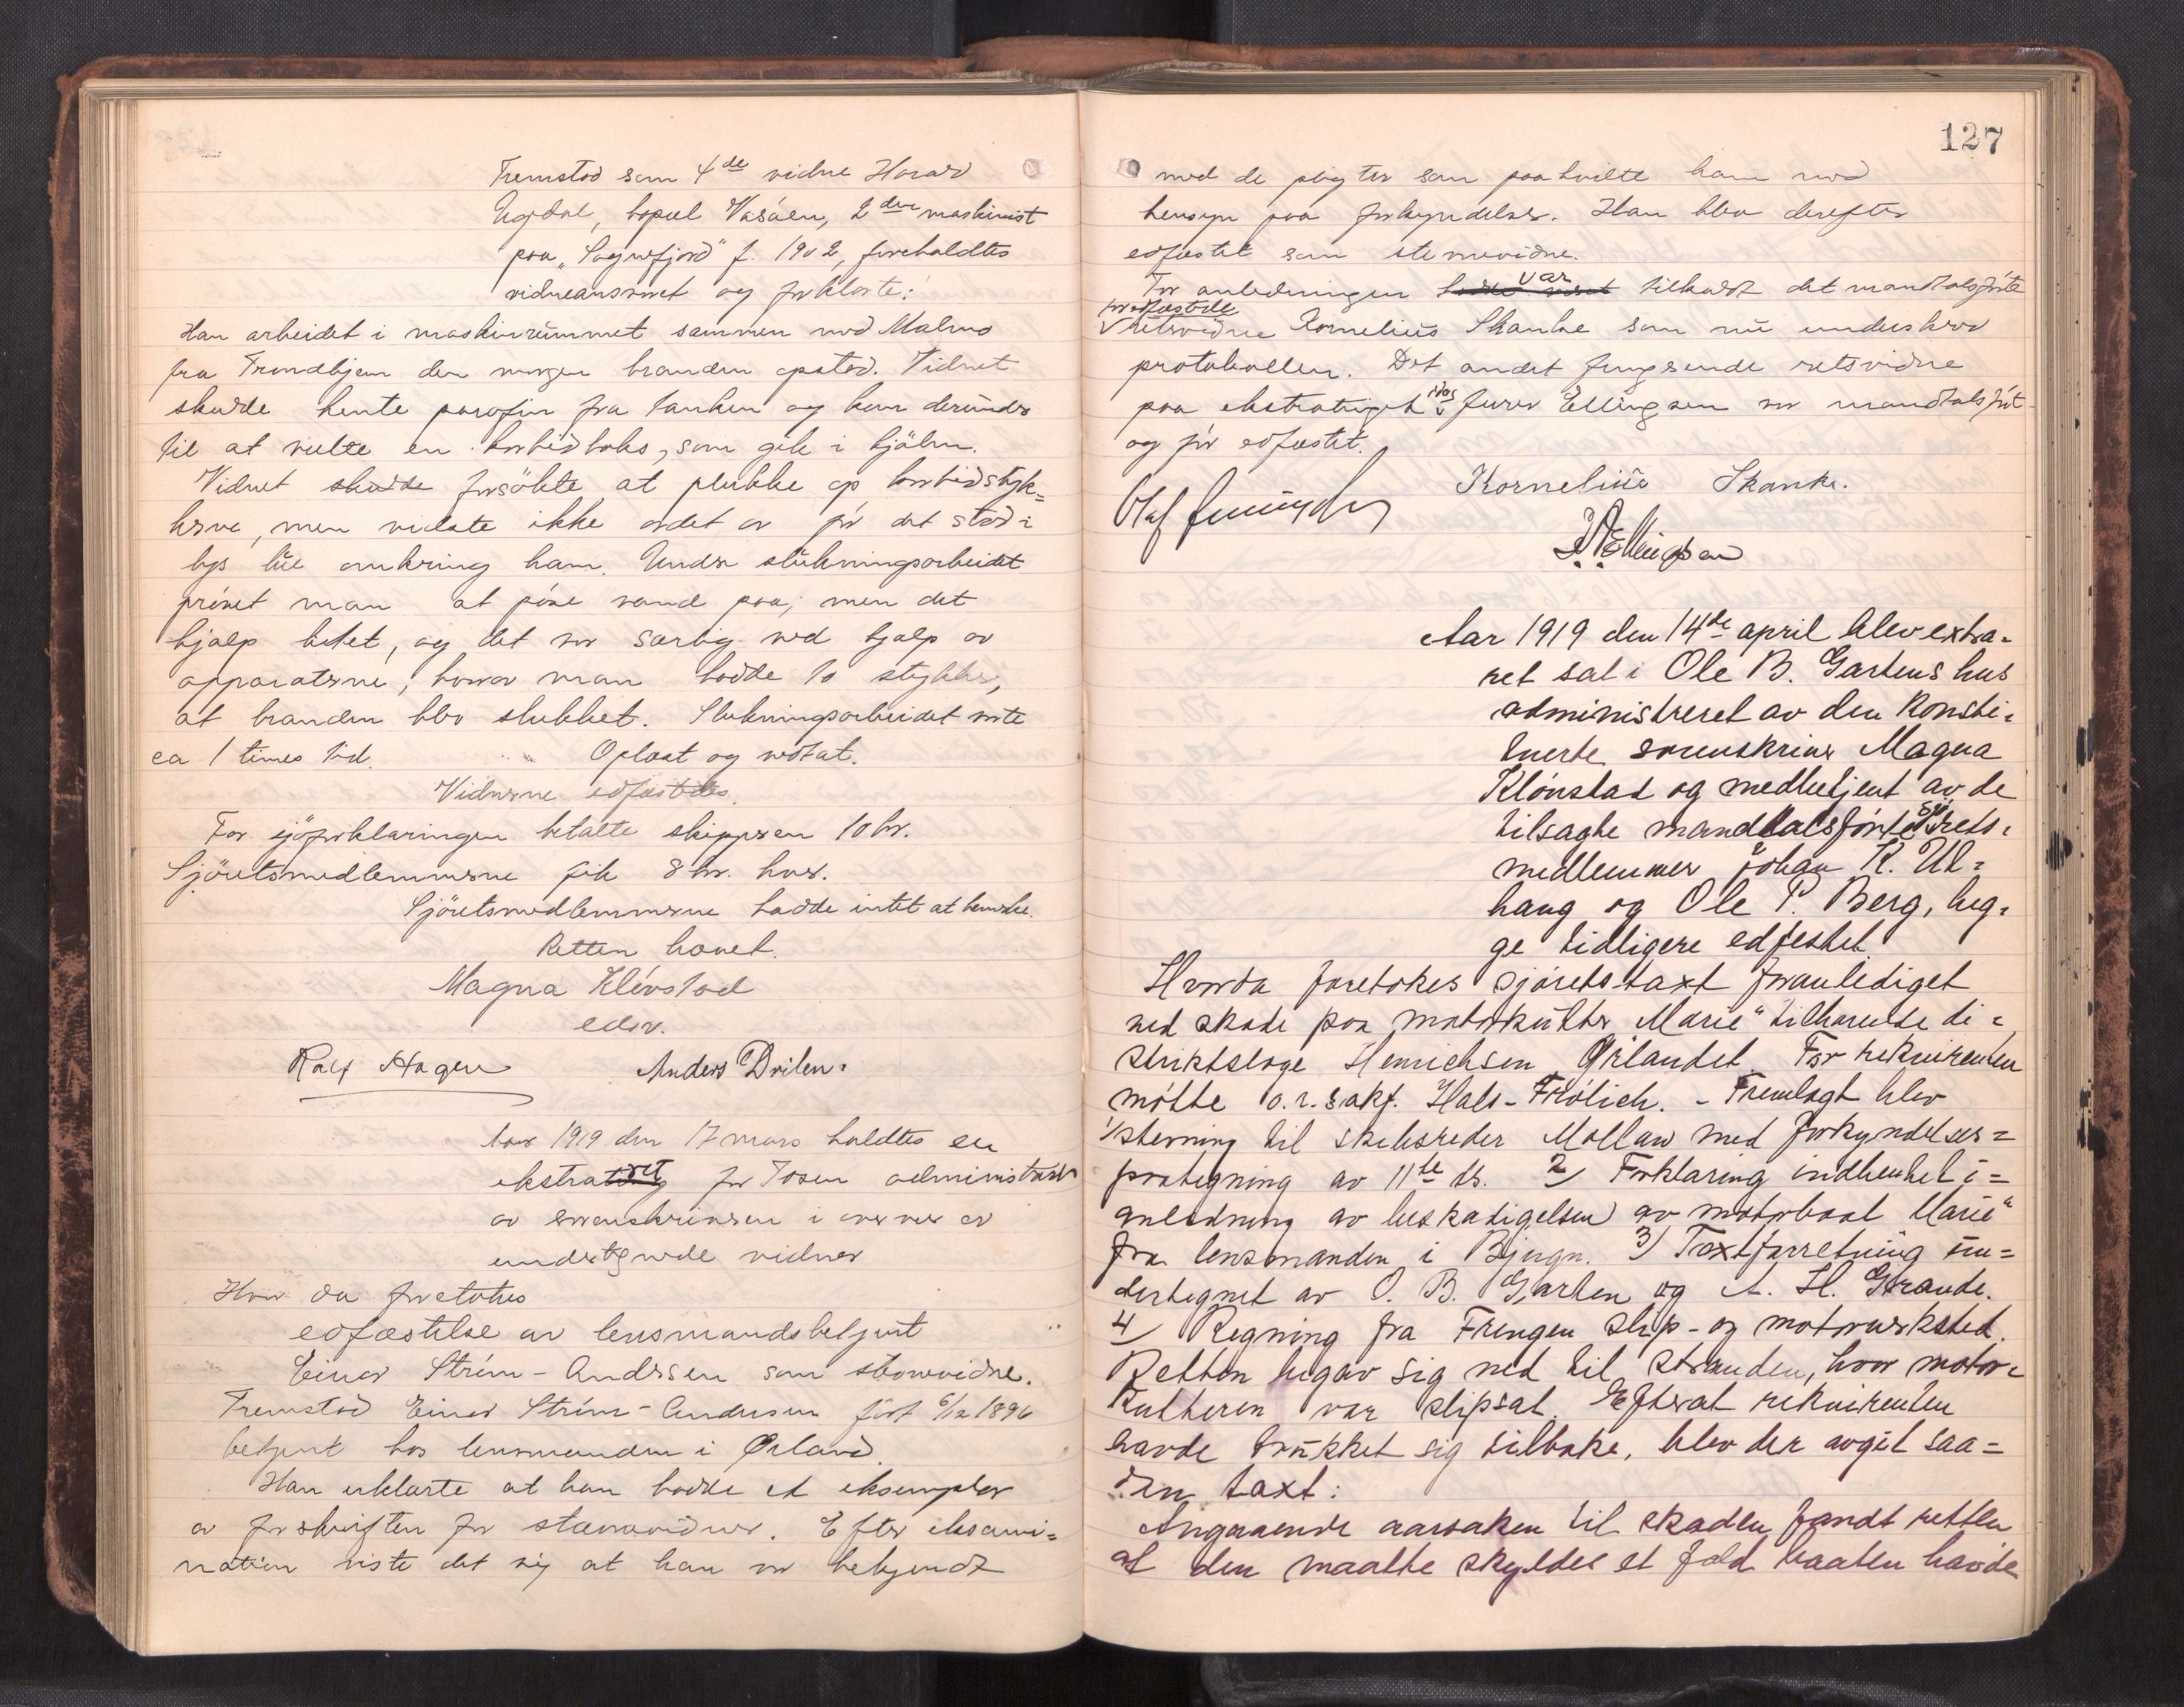 Fremstod som 4de vidne Harald
Ugdal, bopæl Vasöen, 2den maskinist
paa "Sognefjord" f. 1902, foreholdtes
vidneansvaret og forklarte:
Han arbeidet i maskinrummet sammen med Malmo
fra Trondhjem den morgen branden opstod. Vidnet
skulde hente parafin fra tanken og kom derunder
til at velte en karbidboks, som gik i kjölen.
Vidnet skulde forsökte at plukke op karbidstyk=
kerne, men vidste ikke ordet av før det stod i
lys lue omkring ham. Under slukningsarbeidet
prövet man at pöse vand paa; men det
hjalp litet, og det var særlig ved hjælp av
apparaterne, hvorav man hadde 10 stykker,
at branden blev slukket. Slukningsarbeidet varte
ca 1 times tid. Oplæst og vedtat.
Vidnerne edfæstedes.
For sjöforklaringen betalte skipperen 10 kr.
Sjöretsmedlemmerne fik 8 kr. hver.
Sjöretsmedlemmerne hadde intet at bemerke.
Retten hævet.
Magna Klövstad
edsv.
Ralf Hagen Anders Drilen.
Aar 1919 den 17 mars holdtes en
ekstraret for Fosen administrert
av sorenskriveren i nærvær av
undertegnede vidner
Hvor da foretokes
edfæstelse av lensmandsbetjent
Einar Ström-Andersen som stevnevidne.
Fremstod Einar Ström-Andersen født 6/12 1896
betjent hos lensmanden i Ørland.
Han erklærte at han hadde et eksemplar
av forskriften for stævnevidner. Efter eksami=
nation viste det sig at han var bekjendt
127
med de pligter som paahvilte ham med
hensyn paa forkyndelser. Han blev derefter
edfæstet som stevnevidne.
For anledningen var tilkaldt det mandtalsførte
før edfæstede
retsvidne Kornelius Skanke som nu underskrev
protokollen. Det andet fungerende retsvidne
paa ekstratinget Ellingsen var mandtalsført
og før edfæstet.
Kornelius Skanke.
Olaf
Ellingsen
Aar 1919 den 14de april blev extra=
ret sat i Ole B. Gartens hus
administreret av den konsti=
tuerte sorenskriver Magna
Klönstad og medbetjent av de
tilsagte mandtalsförte sjörets=
medlemmer Johan K. Uk=
haug og Ole P. Berg, beg=
ge tidligere edfestet.
Hvorda foretokes sjöretstaxt foranlediget
ved skade paa motorkutter "Marie" tilhørende di=
striktslæge Henrichsen Ørlandet. For rekvirenten
mötte o.r.sakf. Hals-Frölich. - Fremlagt blev
1/ stevning til skibsreder Mollaw med forkyndelses=
paategning av 11te ds. 2/ Forklaring indhentet i=
anledning av beskadigelsen av motorbaat "Marie"
fra lensmanden i Bjugn. 3/ Taxtforretning un=
dertegnet av O. B. Garten og A. H. Grande.
4/ Regning fra Frengen slip- og motorverksted.
Retten begav sig ned til stranden, hvor motor=
kutteren var slipsat. Efterat rekvirenten
havde trukket sig tilbake, blev der avgit saa=
den taxt:
Angaaende aarsaken til skaden fandt retten
at den maatte skyldes et fald baaten havde